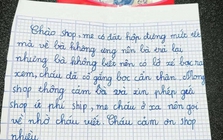 Chào shop, mẹ có đặt hộp đựng mứt tết
mà về bà không ưng nên bà trả lại
nhưng bà không biết nên có lỡ xé bọc ra
xem, cháu đã cố gắng bọc cẩn thận. Mong
shop thông cảm và và xin phép gửi
shop ít phí ship, mẹ cháu ở xa nên gọi
về nhờ cháu viết. Cháu cảm ơn shop
nhiều